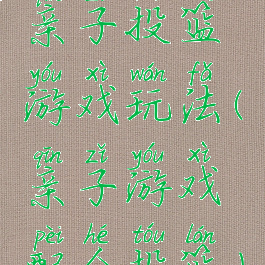 亲子投篮
yóu xì wán fǎ
游戏玩法(
qīn zǐ yóu xì
亲子游戏
pèi hé tóu lán
配合投篮)